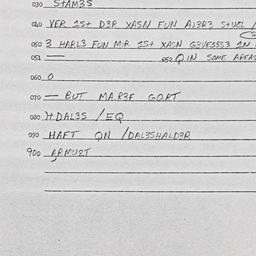 030 STAM3S
040 VER 1S+ D3R XASN FUN A)3R3 S+UCL
050 3 HARL3 FUN MIR 1S+ XASN G3VE3SS3 IN
051 — 052 Q IN SOME AREAS
060 O
070 — BUT MA.R3F GORT
080 )+DAL3S / EQ
090 HAFT ON /DAL3SHALD3R
900 ARMU2T